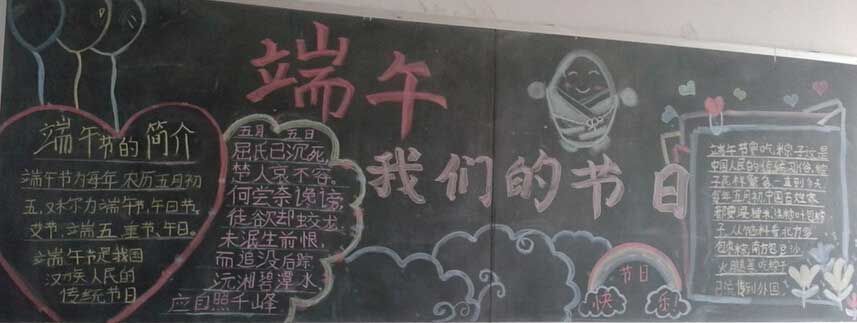 端午
我们的节日
端午节的简介
端午节为每年农历五月初
五,又称为端午节,午日节。
艾节,端五,重节,午日。
端午节是我国
汉族人民的
传统节日
五月 五日
屈氏已沉死
楚人哀不容。
何尝奈谗谤
徒欲却蛟龙
未泯生前恨,
而追没后踪
沅湘碧潭水
应自照千峰
节日
快 乐!
端午节吃粽子,这是
中国人民的传统习俗,粽
每年五月初中国百姓家
子,从馅料看,北方多
包枣粽,南方包豆沙
火腿